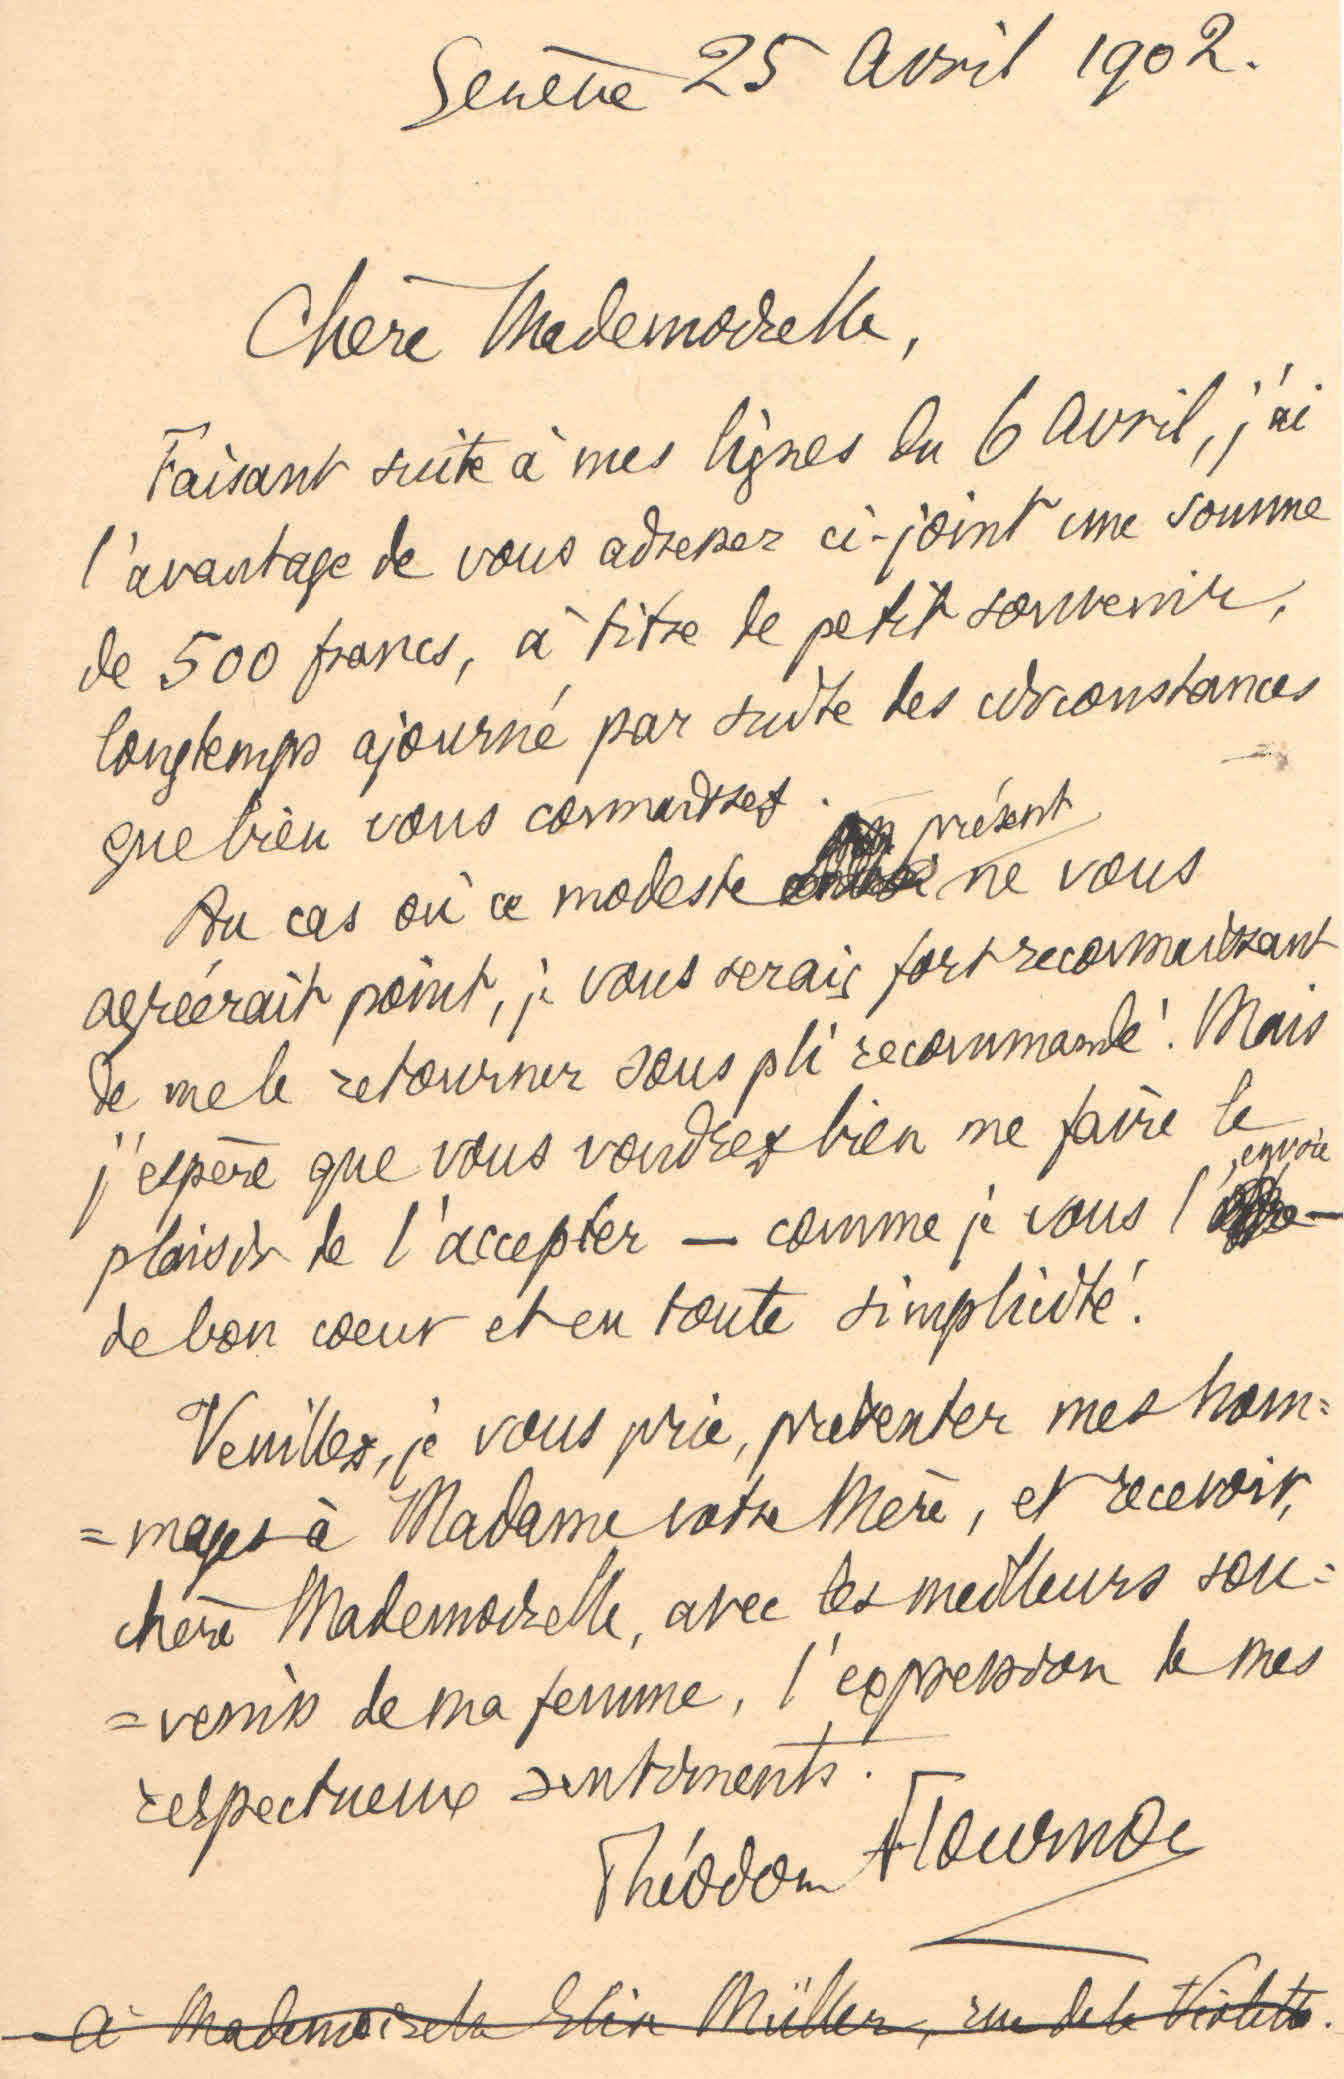 Genève 25 Avril 1902.
Chère Mademoiselle,
Faisant suite à mes lignes du 6 Avril, j'ai
l'avantage de vous adresser ci-joint une somme
de 500 francs, à titre de petit souvenir,
longtemps ajourné par suite des circonstances
que bien vous connaissez.
présent
Au cas où ce modeste ne vous
agréérait point, je vous serais fort reconnaissant
de me le retourner sous pli recommandé. Mais
j'espère que vous voudrez bien me faire le
envoie
plaisir de l'accepter — comme je vous l' —
de bon coeur et en toute simplicité.
Veuillez, je vous prie, présenter mes hom=
=mages à Madame votre Mère, et recevoir,
chère Mademoiselle, avec les meilleurs sou=
=venirs de ma femme, l'expression de mes
respectueux sentiments.
Théodore Flournoy
à Mademoiselle Elise Müller, rue de la Violette.